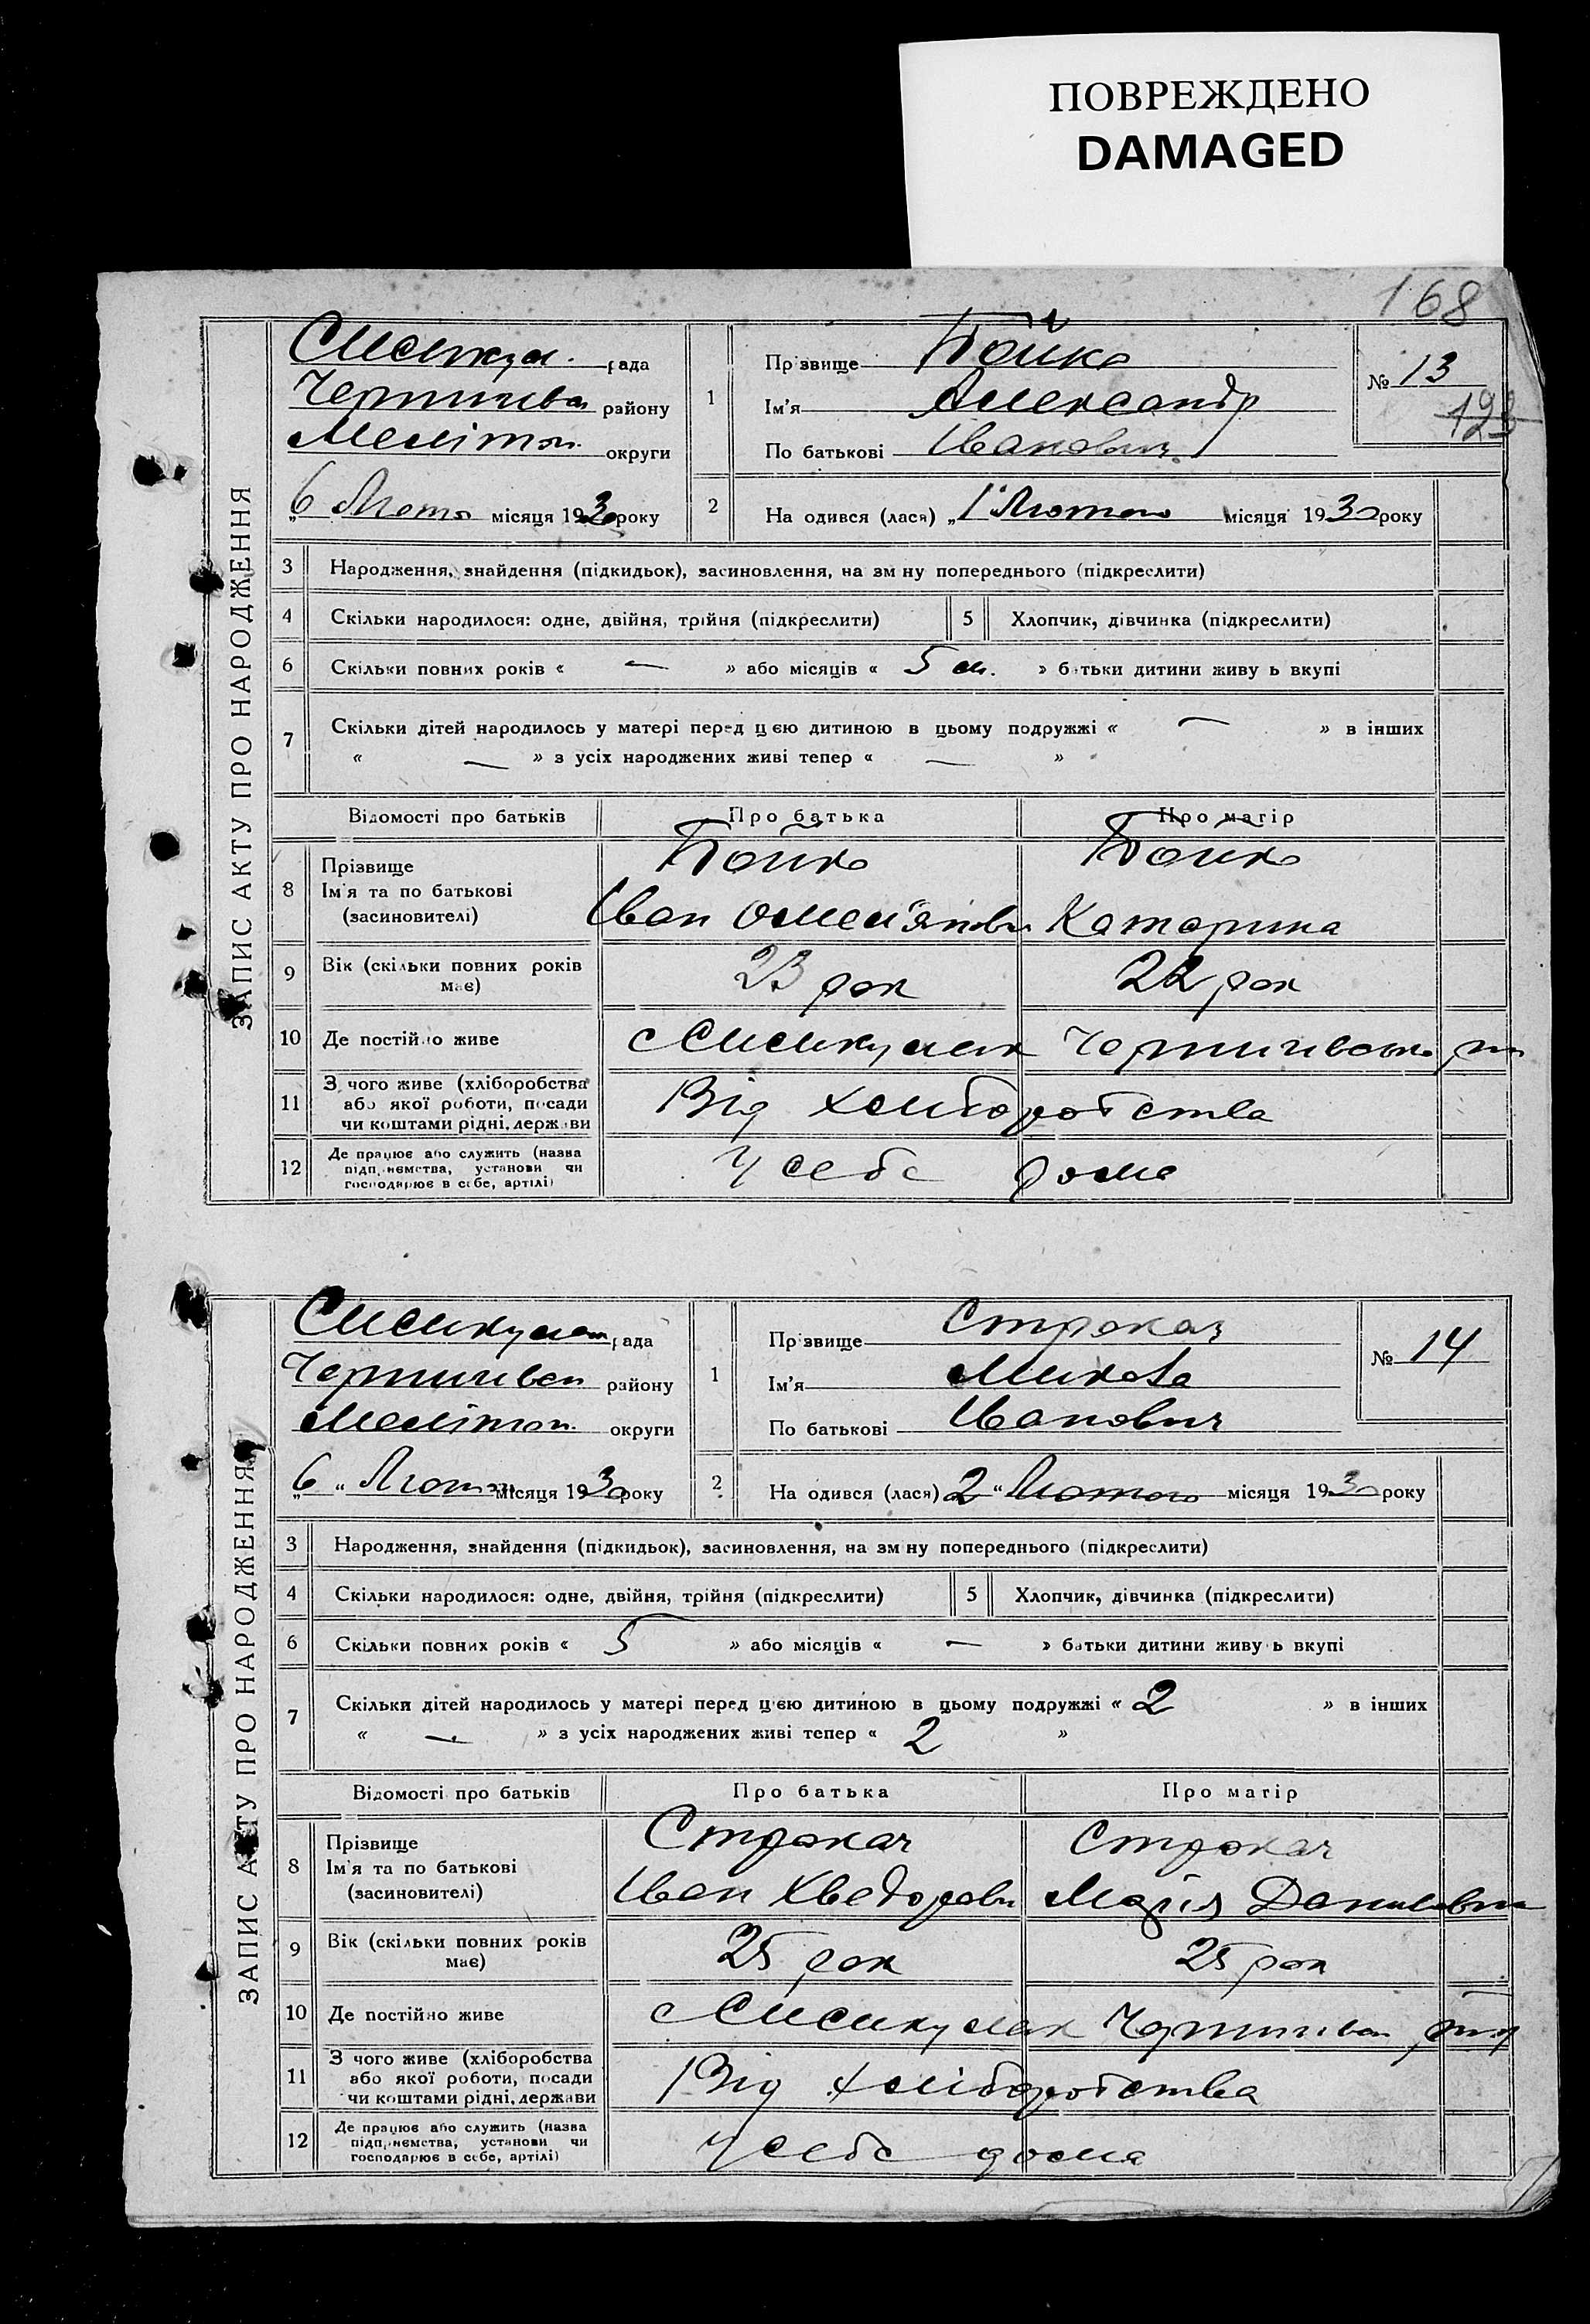 ПОВРЕЖДЕНО
DAMAGED
168
ЗАПИС АКТУ ПРО НАРОДЖЕННЯ
рада
району
Мелітоп. округи
"6 Лютого місяця 1930 року
1
Прізвище Бойко
Ім'я Александр
По батькові Иванович
№ 13
123
2
На одився (лася) „1" Лютого місяця 1930 року
3 Народження, знайдення (підкидьок), засиновлення, на зм ну попереднього (підкреслити)
4 Скільки народилося: одне, двійня, трійня (підкреслити) 5 Хлопчик, дівчинка (підкреслити)
6 Скільки повних років « — » або місяців « 5 м. » батьки дитини живу ь вкупі
7 Скільки дітей народилось у матері перед цією дитиною в цьому подружжі « — » в інших
« — » з усіх народжених живі тепер « — »
Відомості про батьків Про батька Про матір
8 Прізвище Бойко Бойко
Ім'я та по батькові
(засиновителі) Иван Омел'янович Катарина
9 Вік (скільки повних років має) 23 рок 22 рок
10 Де постійно живе с
11 З чого живе (хліборобства
або якої роботи, посади
чи коштами рідні, держави Від хліборобства
12 Де працює або служить (назва
підприємства, установи чи
господарює в себе, артілі) У себе дома
ЗАПИС АКТУ ПРО НАРОДЖЕННЯ
рада
району
Мелітоп. округи
„6" Лютого місяця 1930 року
1
Прізвище Строкач
Ім'я Микола
По батькові Иванович
№ 14
2
На одився (лася) 2 " Лютого місяця 1930 року
3 Народження, знайдення (підкидьок), засиновлення, на зм ну попереднього (підкреслити)
4 Скільки народилося: одне, двійня, трійня (підкреслити) 5 Хлопчик, дівчинка (підкреслити)
6 Скільки повних років « 5 » або місяців « — » батьки дитини живу ь вкупі
7 Скільки дітей народилось у матері перед цією дитиною в цьому подружжі « 2 » в інших
« — » з усіх народжених живі тепер « 2 »
Відомості про батьків Про батька Про матір
8 Прізвище Строкач Строкач
Ім'я та по батькові
(засиновителі) Иван Хведорови Марія Даниловна
9 Вік (скільки повних років має) 25 рок 25 рок
10 Де постійно живе с
11 З чого живе (хліборобства
або якої роботи, посади
чи коштами рідні, держави Від хліборобства
12 Де працює або служить (назва
підприємства, установи чи
господарює в себе, артілі) У себе дома